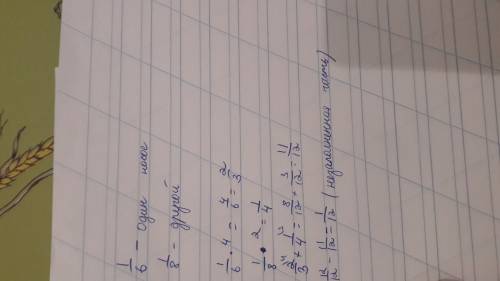 1/6 - один насос
1/8 - другой
1/6 · 4 = 4/6 = 2/3
1/8 · 2 = 1/4
4/ 2/3 + 3/ 1/4 = 8/12 + 3/12 = 11/12
12/12 - 11/12 = 1/12 (незаполненная часть)